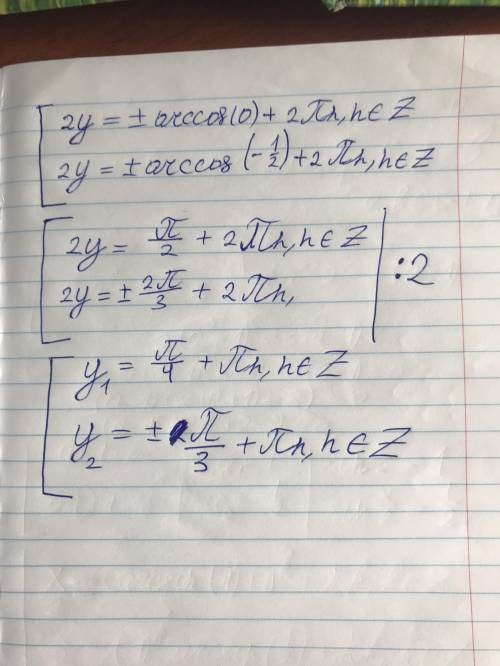 2y = ± arccos(0) + 2πn, n ∈ Z
2y = ± arccos(-1/2) + 2πn, n ∈ Z
2y = π/2 + 2πn, n ∈ Z
2y = ± 2π/3 + 2πn, | :2
y₁ = π/4 + πn, n ∈ Z
y₂ = ± π/3 + πn, n ∈ Z